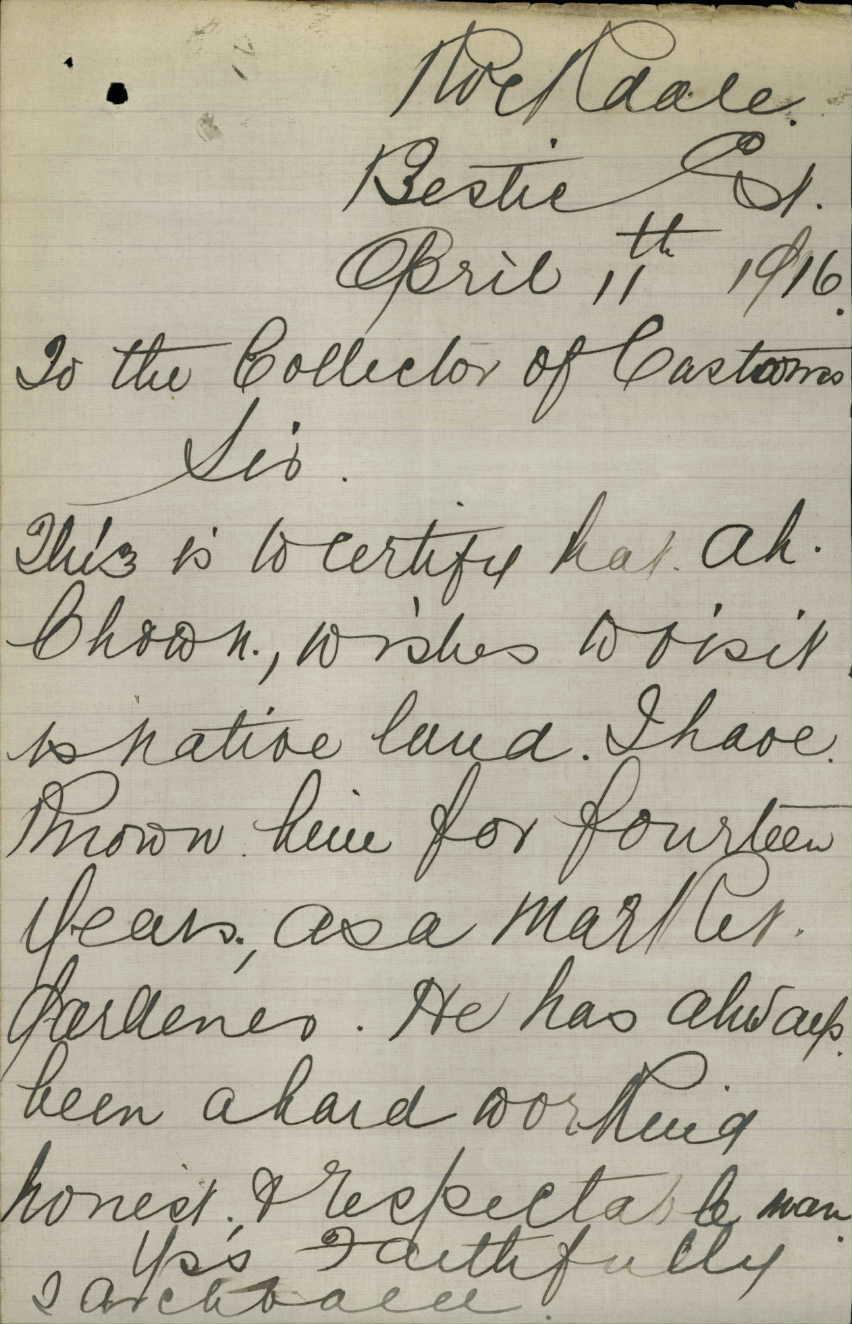 Rockdale.
Bestic St.
April 11th 1916.
To the Collector of Customs
Sir.
This is to certify hat. Ah.
Chown., wishes to visit
is native land. I have.
Known. him for fourteen
years., as a market.
Gardener. He has always.
been a hard working
honest. & respectable man.
Yrs Faithfully